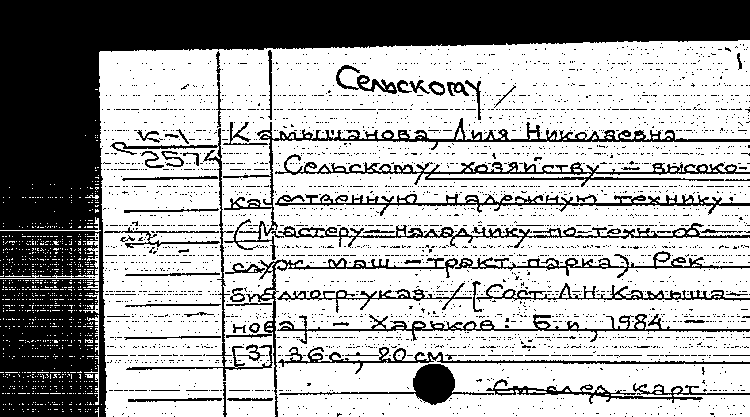 Сельскому
К-1 Камышанова, Лиля Николаевна.
2574 Сельскому хозяйству – высоко-
качественную надежную технику.
(Мастеру-наладчику по техн. об-
служ. маш.-тракт. парка). Рек.
библиогр. указ. / [Сост. Л.Н. Камыша-
нова] – Харьков: Б.и., 1984. –
[3], 36 с.; 20 см.
См. след. карт.